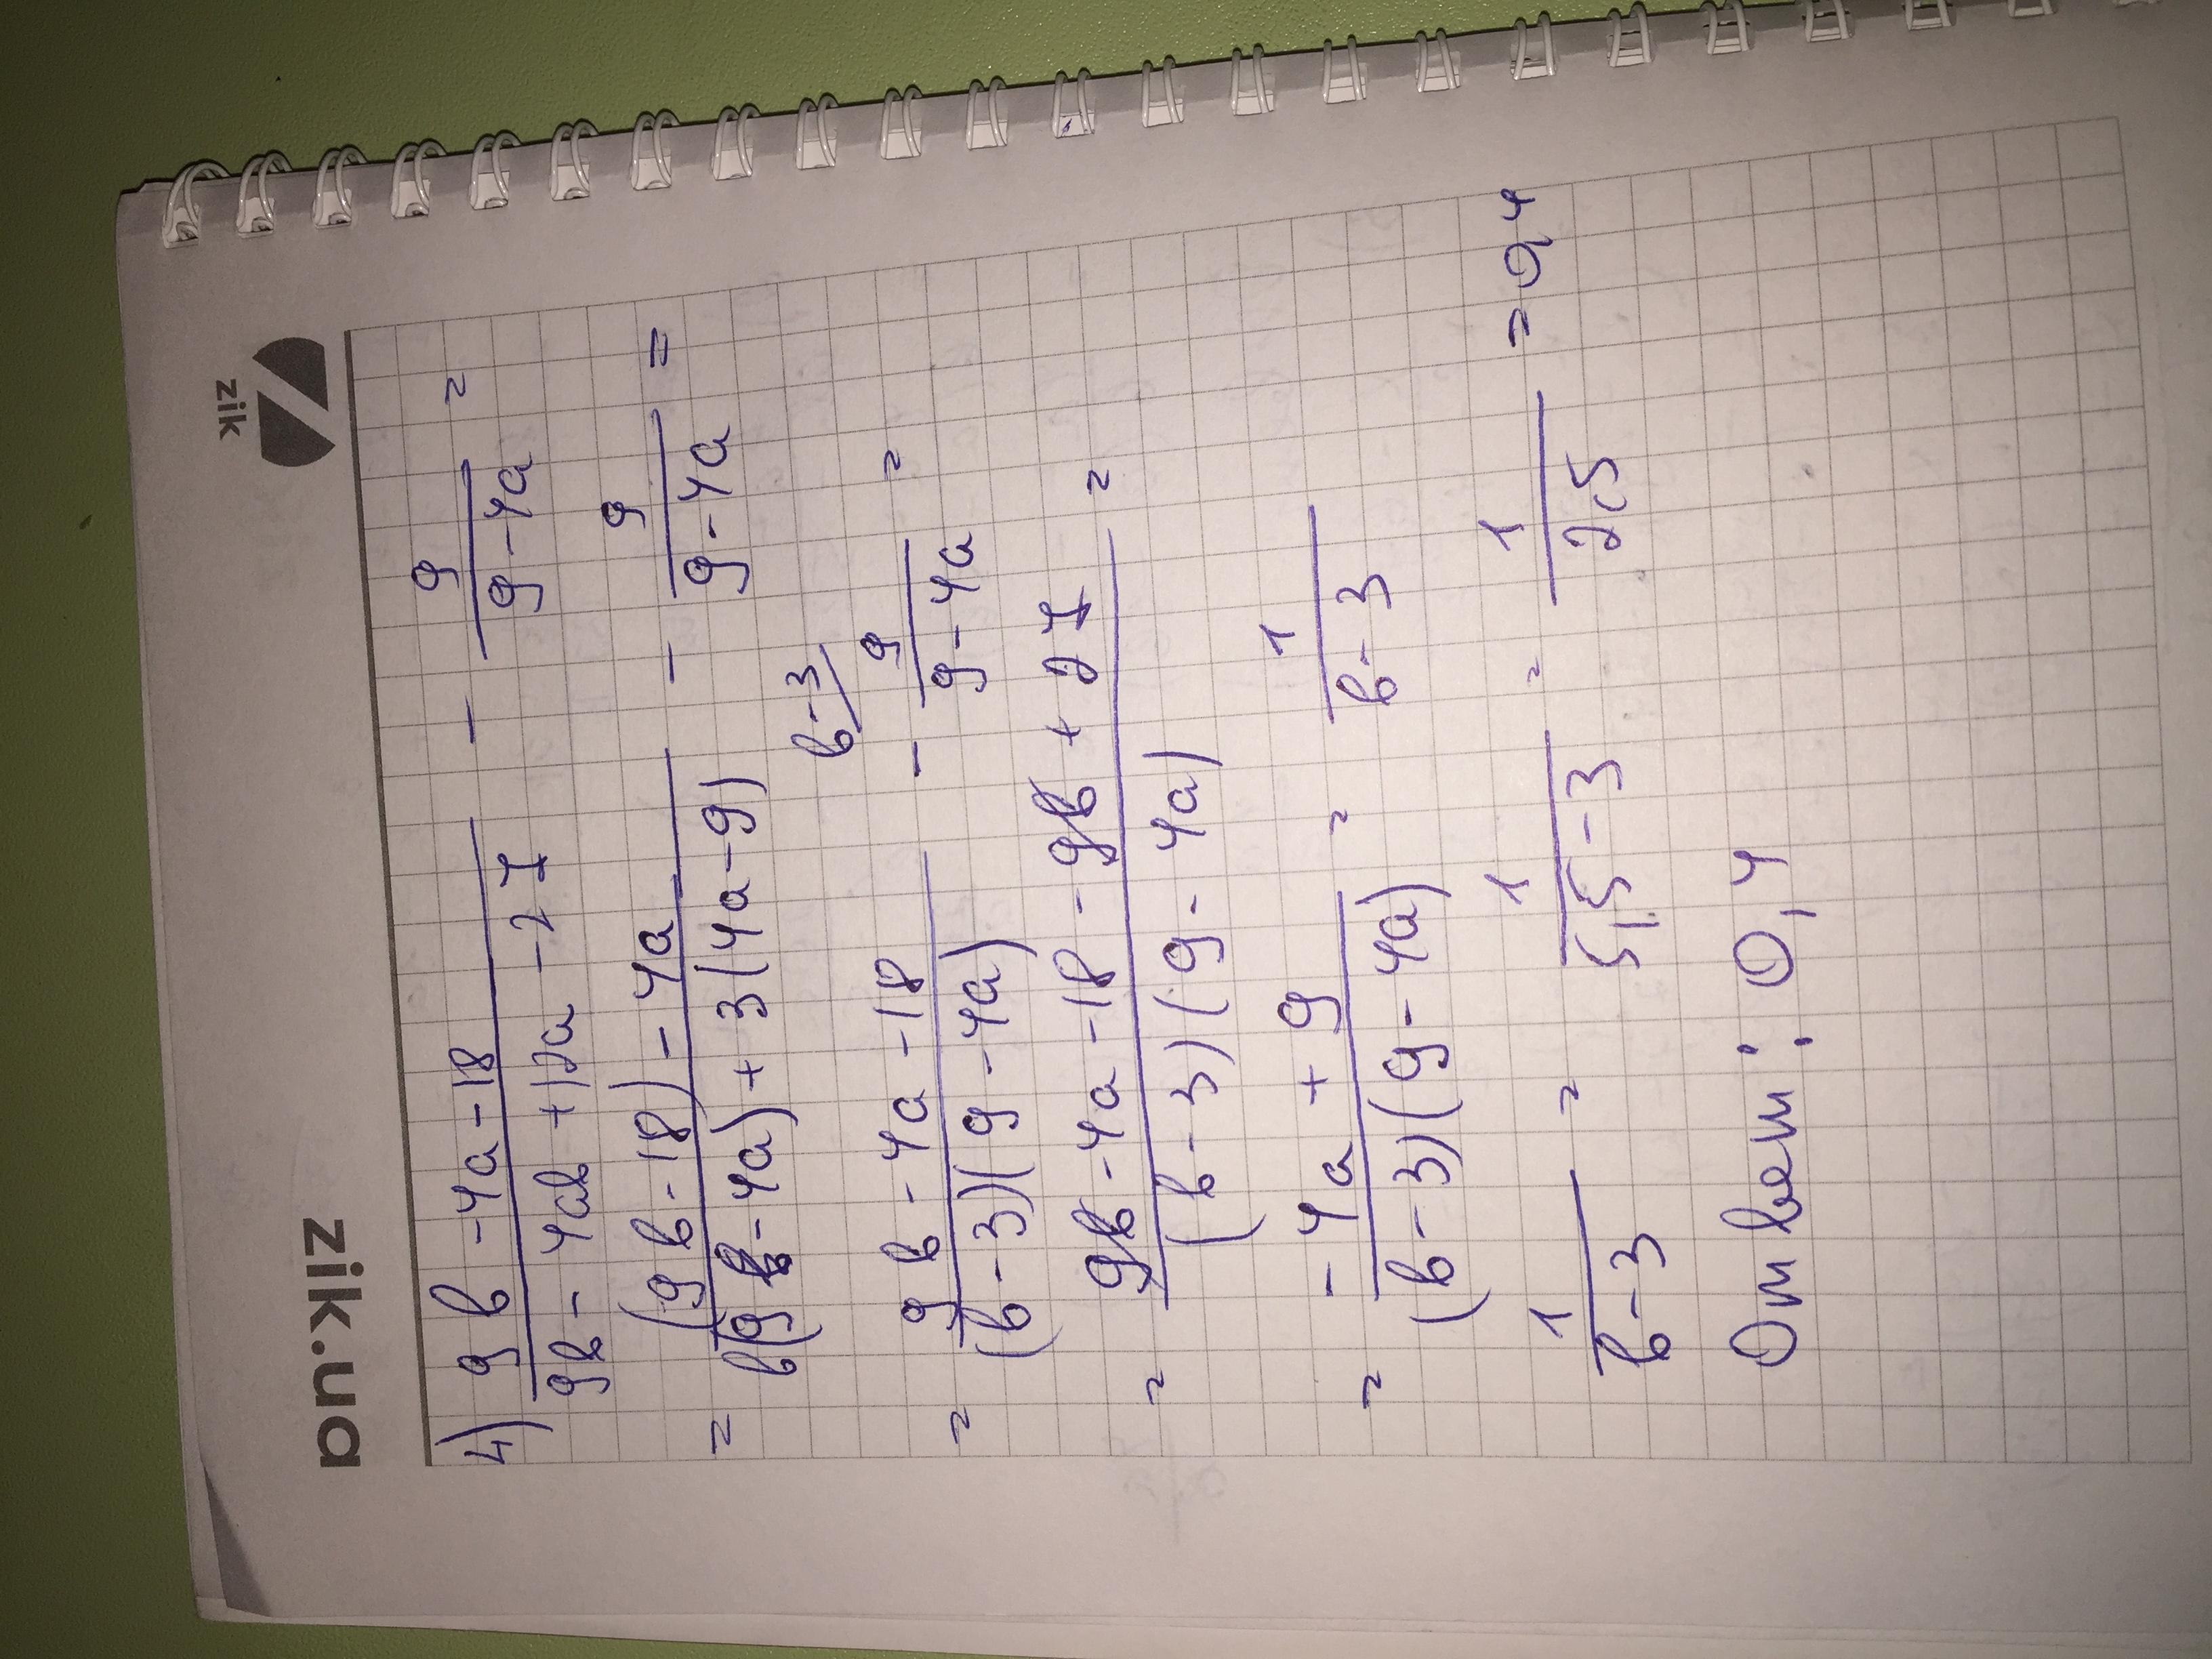 zik.ua
zik
4) (9b - 4a - 18)/(9b - 4ab + 12a - 27) - 9/(9 - 4a) =
= ((9b - 18) - 4a)/(b(9 - 4a) + 3(4a - 9)) - 9/(9 - 4a) =
b - 3/
= (9b - 4a - 18)/((b - 3)(9 - 4a)) - 9/(9 - 4a) =
= (9b - 4a - 18 - 9b + 27)/((b - 3)(9 - 4a)) =
= (-4a + 9)/((b - 3)(9 - 4a)) = 1/(b - 3)
1/(b - 3) = 1/(5,5 - 3) = 1/2,5 = 0,4
Ответ: 0,4